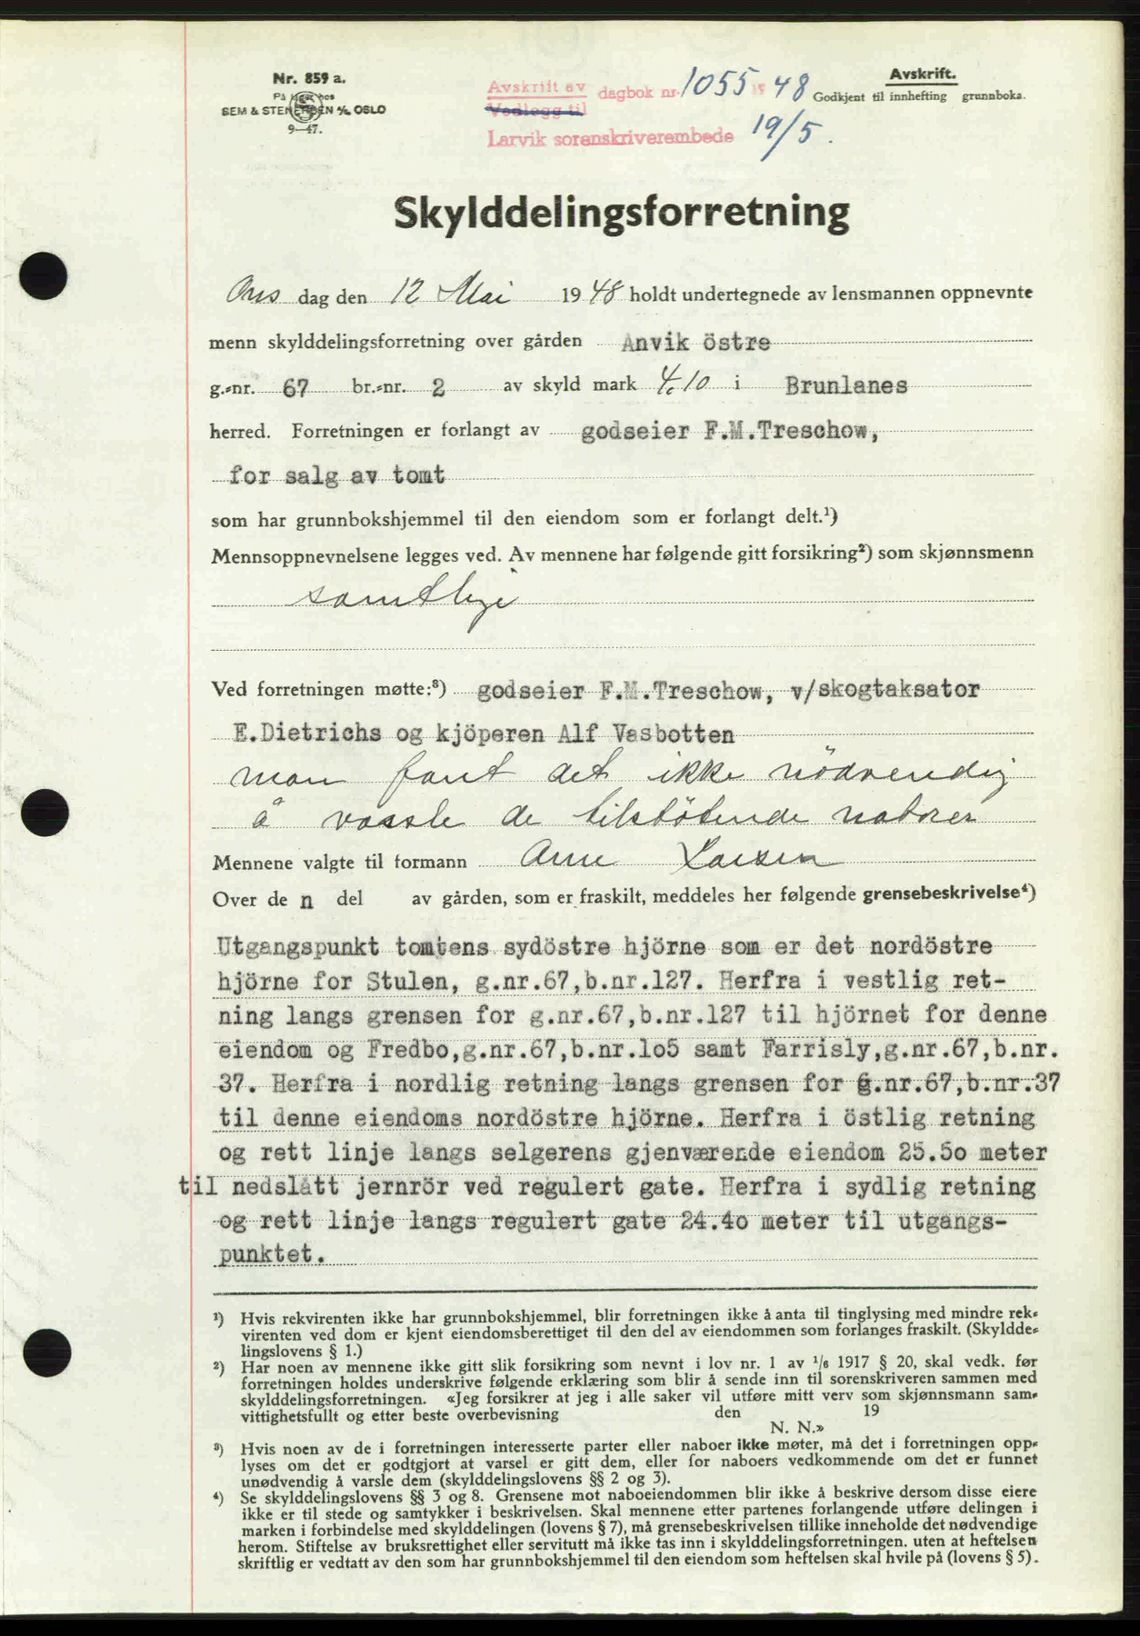 Nr. 859 a.
På lager hos
SEM & STENERSEN A/S OSLO
9—47.
Avskrift av
Vedlegg til
dagbok nr. 1055 19 48
Larvik sorenskriverembede 19/5.
Avskrift.
Godkjent til innhefting grunnboka.
Skylddelingsforretning
Ons dag den 12 Mai 19 48 holdt undertegnede av lensmannen oppnevnte
menn skylddelingsforretning over gården Anvik östre
g.-nr. 67 br.-nr. 2 av skyld mark 4.10 i Brunlanes
herred. Forretningen er forlangt av godseier F.M.Treschow,
for salg av tomt
som har grunnbokshjemmel til den eiendom som er forlangt delt.¹)
Mennsoppnevnelsene legges ved. Av mennene har følgende gitt forsikring²) som skjønnsmenn
samtlige
Ved forretningen møtte:³) godseier F.M.Treschow, v/skogtaksator
E.Dietrichs og kjöperen Alf Vesbotten
man fant det ikke nödvendig
å varsle de tilstötende naboer
Mennene valgte til formann Arne Larsen
Over de n del av gården, som er fraskilt, meddeles her følgende grensebeskrivelse⁴)
Utgangspunkt tomtens sydöstre hjörne som er det nordöstre
hjörne for Stulen, g.nr.67,b.nr.127. Herfra i vestlig ret-
ning langs grensen for g.nr.67,b.nr.127 til hjörnet for denne
eiendom og Fredbo,g.nr.67,b.nr.1o5 samt Farrisly,g.nr.67,b.nr.
37. Herfra i nordlig retning langs grensen for g.nr.67,b.nr.37
til denne eiendoms nordöstre hjörne. Herfra i östlig retning
og rett linje langs selgerens gjenværende eiendom 25.5o meter
til nedslått jernrör ved regulert gate. Herfra i sydlig retning
og rett linje langs regulert gate 24.4o meter til utgangs-
punktet.
¹) Hvis rekvirenten ikke har grunnbokshjemmel, blir forretningen ikke å anta til tinglysing med mindre rek-
virenten ved dom er kjent eiendomsberettiget til den del av eiendommen som forlanges fraskilt. (Skyldde-
lingslovens § 1.)
²) Har noen av mennene ikke gitt slik forsikring som nevnt i lov nr. 1 av ¹/₆ 1917 § 20, skal vedk. før
forretningen holdes underskrive følgende erklæring som blir å sende inn til sorenskriveren sammen med
skylddelingsforretningen. «Jeg forsikrer at jeg i alle saker vil utføre mitt verv som skjønnsmann sam-
vittighetsfullt og etter beste overbevisning den 19
N. N.»
³) Hvis noen av de i forretningen interesserte parter eller naboer ikke møter, må det i forretningen opp-
lyses om det er godtgjort at varsel er gitt dem, eller for naboers vedkommende om det er funnet
unødvendig å varsle dem (skylddelingslovens §§ 2 og 3).
⁴) Se skylddelingslovens §§ 3 og 8. Grensene mot naboeiendommen blir ikke å beskrive dersom disse eiere
ikke er til stede og samtykker i beskrivelsen. Skal mennene etter partenes forlangende utføre delingen i
marken i forbindelse med skylddelingen (lovens § 7), må grensebeskrivelsen tillike inneholde det nødvendige
herom. Stiftelse av bruksrettighet eller servitutt må ikke tas inn i skylddelingsforretningen, uten at heftelsen
skriftlig er vedtatt av den som har grunnbokshjemmel til den eiendom som heftelsen skal hvile på (lovens § 5).